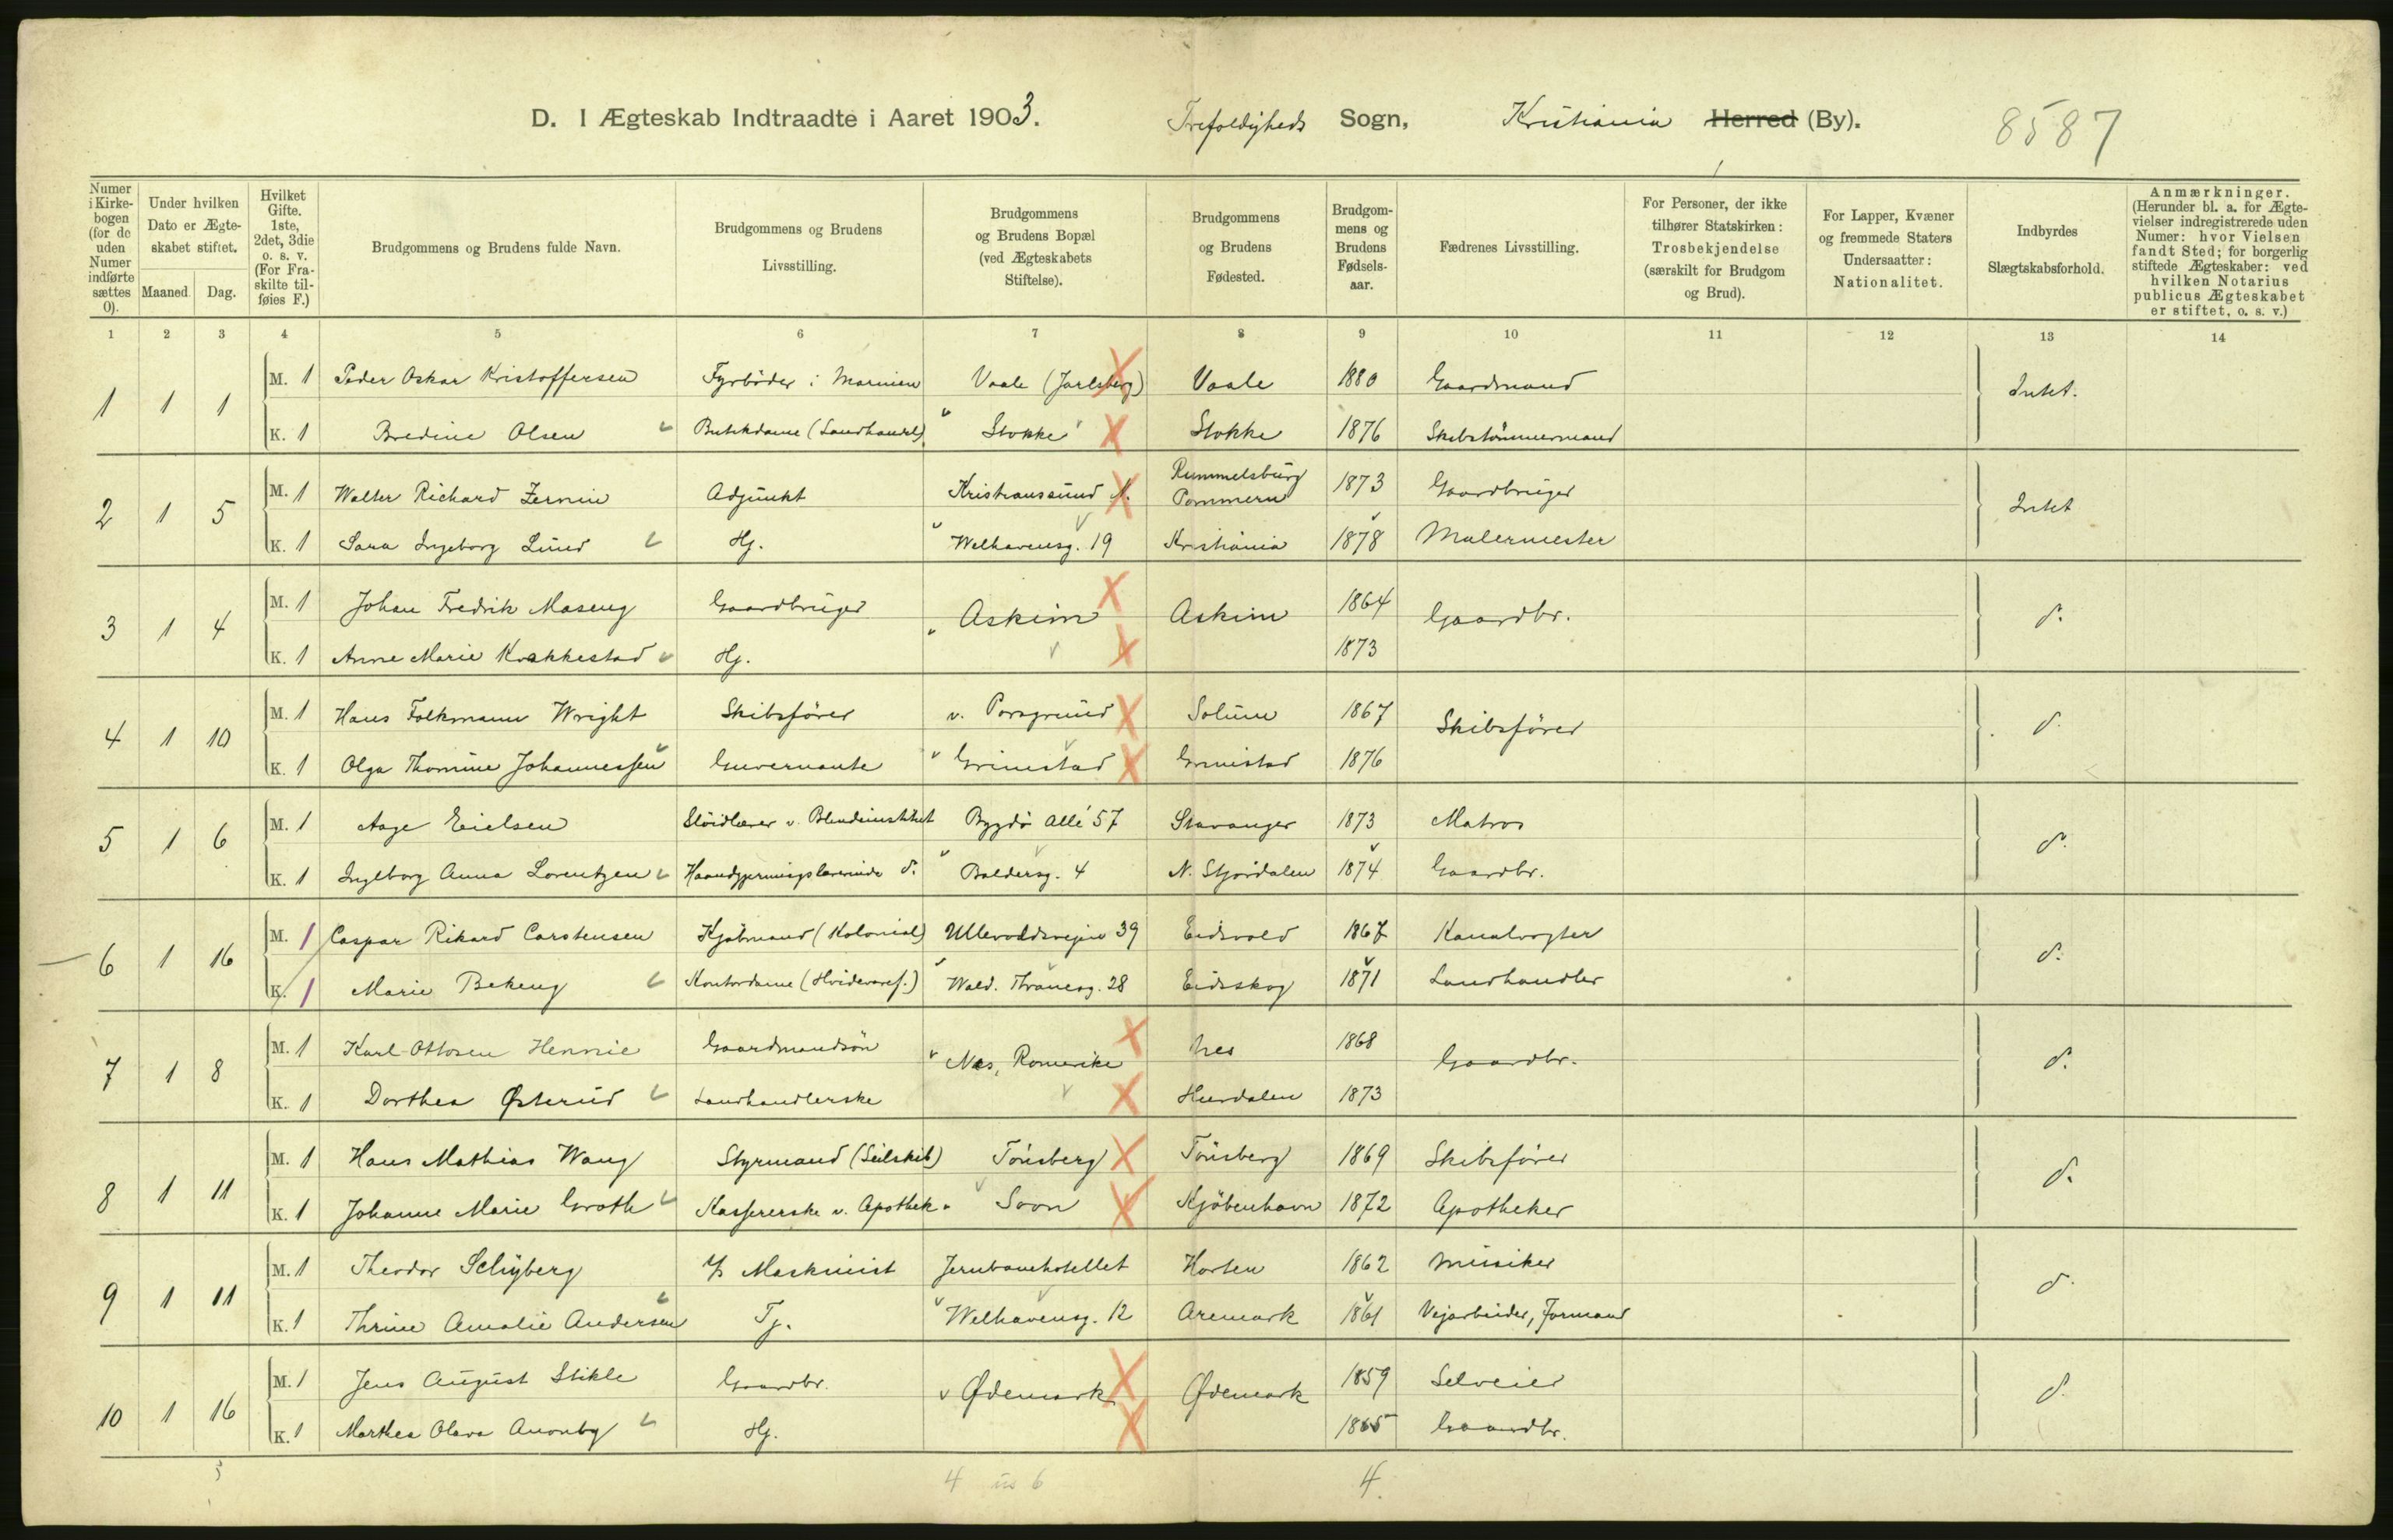 D. I Ægteskab Indtraadte i Aaret 1903. Trefoldigheds Sogn, Kristiania Herred (By). 8587
Numer i Kirkebogen (for de uden Numer indførte sættes 0).
Under hvilken Dato er Ægteskabet stiftet.
Maaned. Dag.
Hvilket Gifte. 1ste, 2det, 3die o. s. v. (For Fraskilte tilføies F.)
Brudgommens og Brudens fulde Navn.
Brudgommens og Brudens Livsstilling.
Brudgommens og Brudens Bopæl (ved Ægteskabets Stiftelse).
Brudgommens og Brudens Fødested.
Brudgommens og Brudens Fødselsaar.
Fædrenes Livsstilling.
For Personer, der ikke tilhører Statskirken: Trosbekjendelse (særskilt for Brudgom og Brud).
For Lapper, Kvæner og fremmede Staters Undersaatter: Nationalitet.
Indbyrdes Slægtskabsforhold.
Anmærkninger. (Herunder bl. a. for Ægtevielser indregistrerede uden Numer: hvor Vielsen fandt Sted; for borgerlig stiftede Ægteskaber: ved hvilken Notarius publicus Ægteskabet er stiftet, o. s. v.)
1 2 3 4 5 6 7 8 9 10 11 12 13 14
1 1 1 M. 1 Peder Oskar Kristoffersen Fyrböder i Marinen Vaale (Jarlsberg) Vaale 1880 Gaardmand Intet.
K. 1 Bredine Olsen Butikdame (Landhandel) Stokke Stokke 1876 Skibstömmermand
2 1 5 M. 1 Walter Richard Zernin Adjunkt Kristianssund N. Rummelsburg Pommern 1873 Gaardbruger Intet
K. 1 Sara Ingeborg Lund Hj. Welhavensg. 19 Kristiania 1878 Malermester
3 1 4 M. 1 Johan Fredrik Maseng Gaardbruger Askim Askim 1864 Gaardbr. d.
K. 1 Anne Marie Kvakkestad Hj. 1873
4 1 10 M. 1 Hans Folkmann Wright Skibsförer v. Porsgrund Solum 1867 Skibsförer d.
K. 1 Olga Thomine Johannessen Guvernante Grimstad Grimstad 1876
5 1 6 M. 1 Aage Eielsen Slöidlærer v. Blindeinstitut Bygdö Allé 57 Stavanger 1873 Matros d.
K. 1 Ingeborg Anna Lorentzen Haandgjerningslærerinde d. Baldersg. 4 N. Stjördalen 1874 Gaardbr.
6 1 16 M. 1 Caspar Rikard Carstensen Kjöbmand (Kolonial) Ullevoldsvejen 39 Eidsvold 1867 Kanalvogter d.
K. 1 Marie Bekeng Kontordame (Hvidevaref.) Wald. Thranesg. 28 Eidsskog 1871 Landhandler
7 1 8 M. 1 Karl Ottosen Hennie Gaardmandsön Næs, Romerike Nes 1868 Gaardbr. d.
K. 1 Dorthea Østerud Landhandlerske Hurdalen 1873
8 1 11 M. 1 Hans Mathias Wang Styrmand (Seilskib) Tönsberg Tönsberg 1869 Skibsförer d.
K. 1 Johanne Marie Groth Kassererske v. Apothek Soon Kjöbenhavn 1872 Apotheker
9 1 11 M. 1 Theodor Schyberg Maskinist Jernbanehotellet Horten 1862 Musiker d.
K. 1 Thrine Amalie Andersen Tj. Welhavensg. 12 Aremark 1861 Vejarbeider, Formand
10 1 16 M. 1 Jens August Stikle Gaardbr. Ødemark Ødemark 1859 Selveier d.
K. 1 Marthea Olava Aaonby Hj. 1865 Gaardbr.
4 6 4.